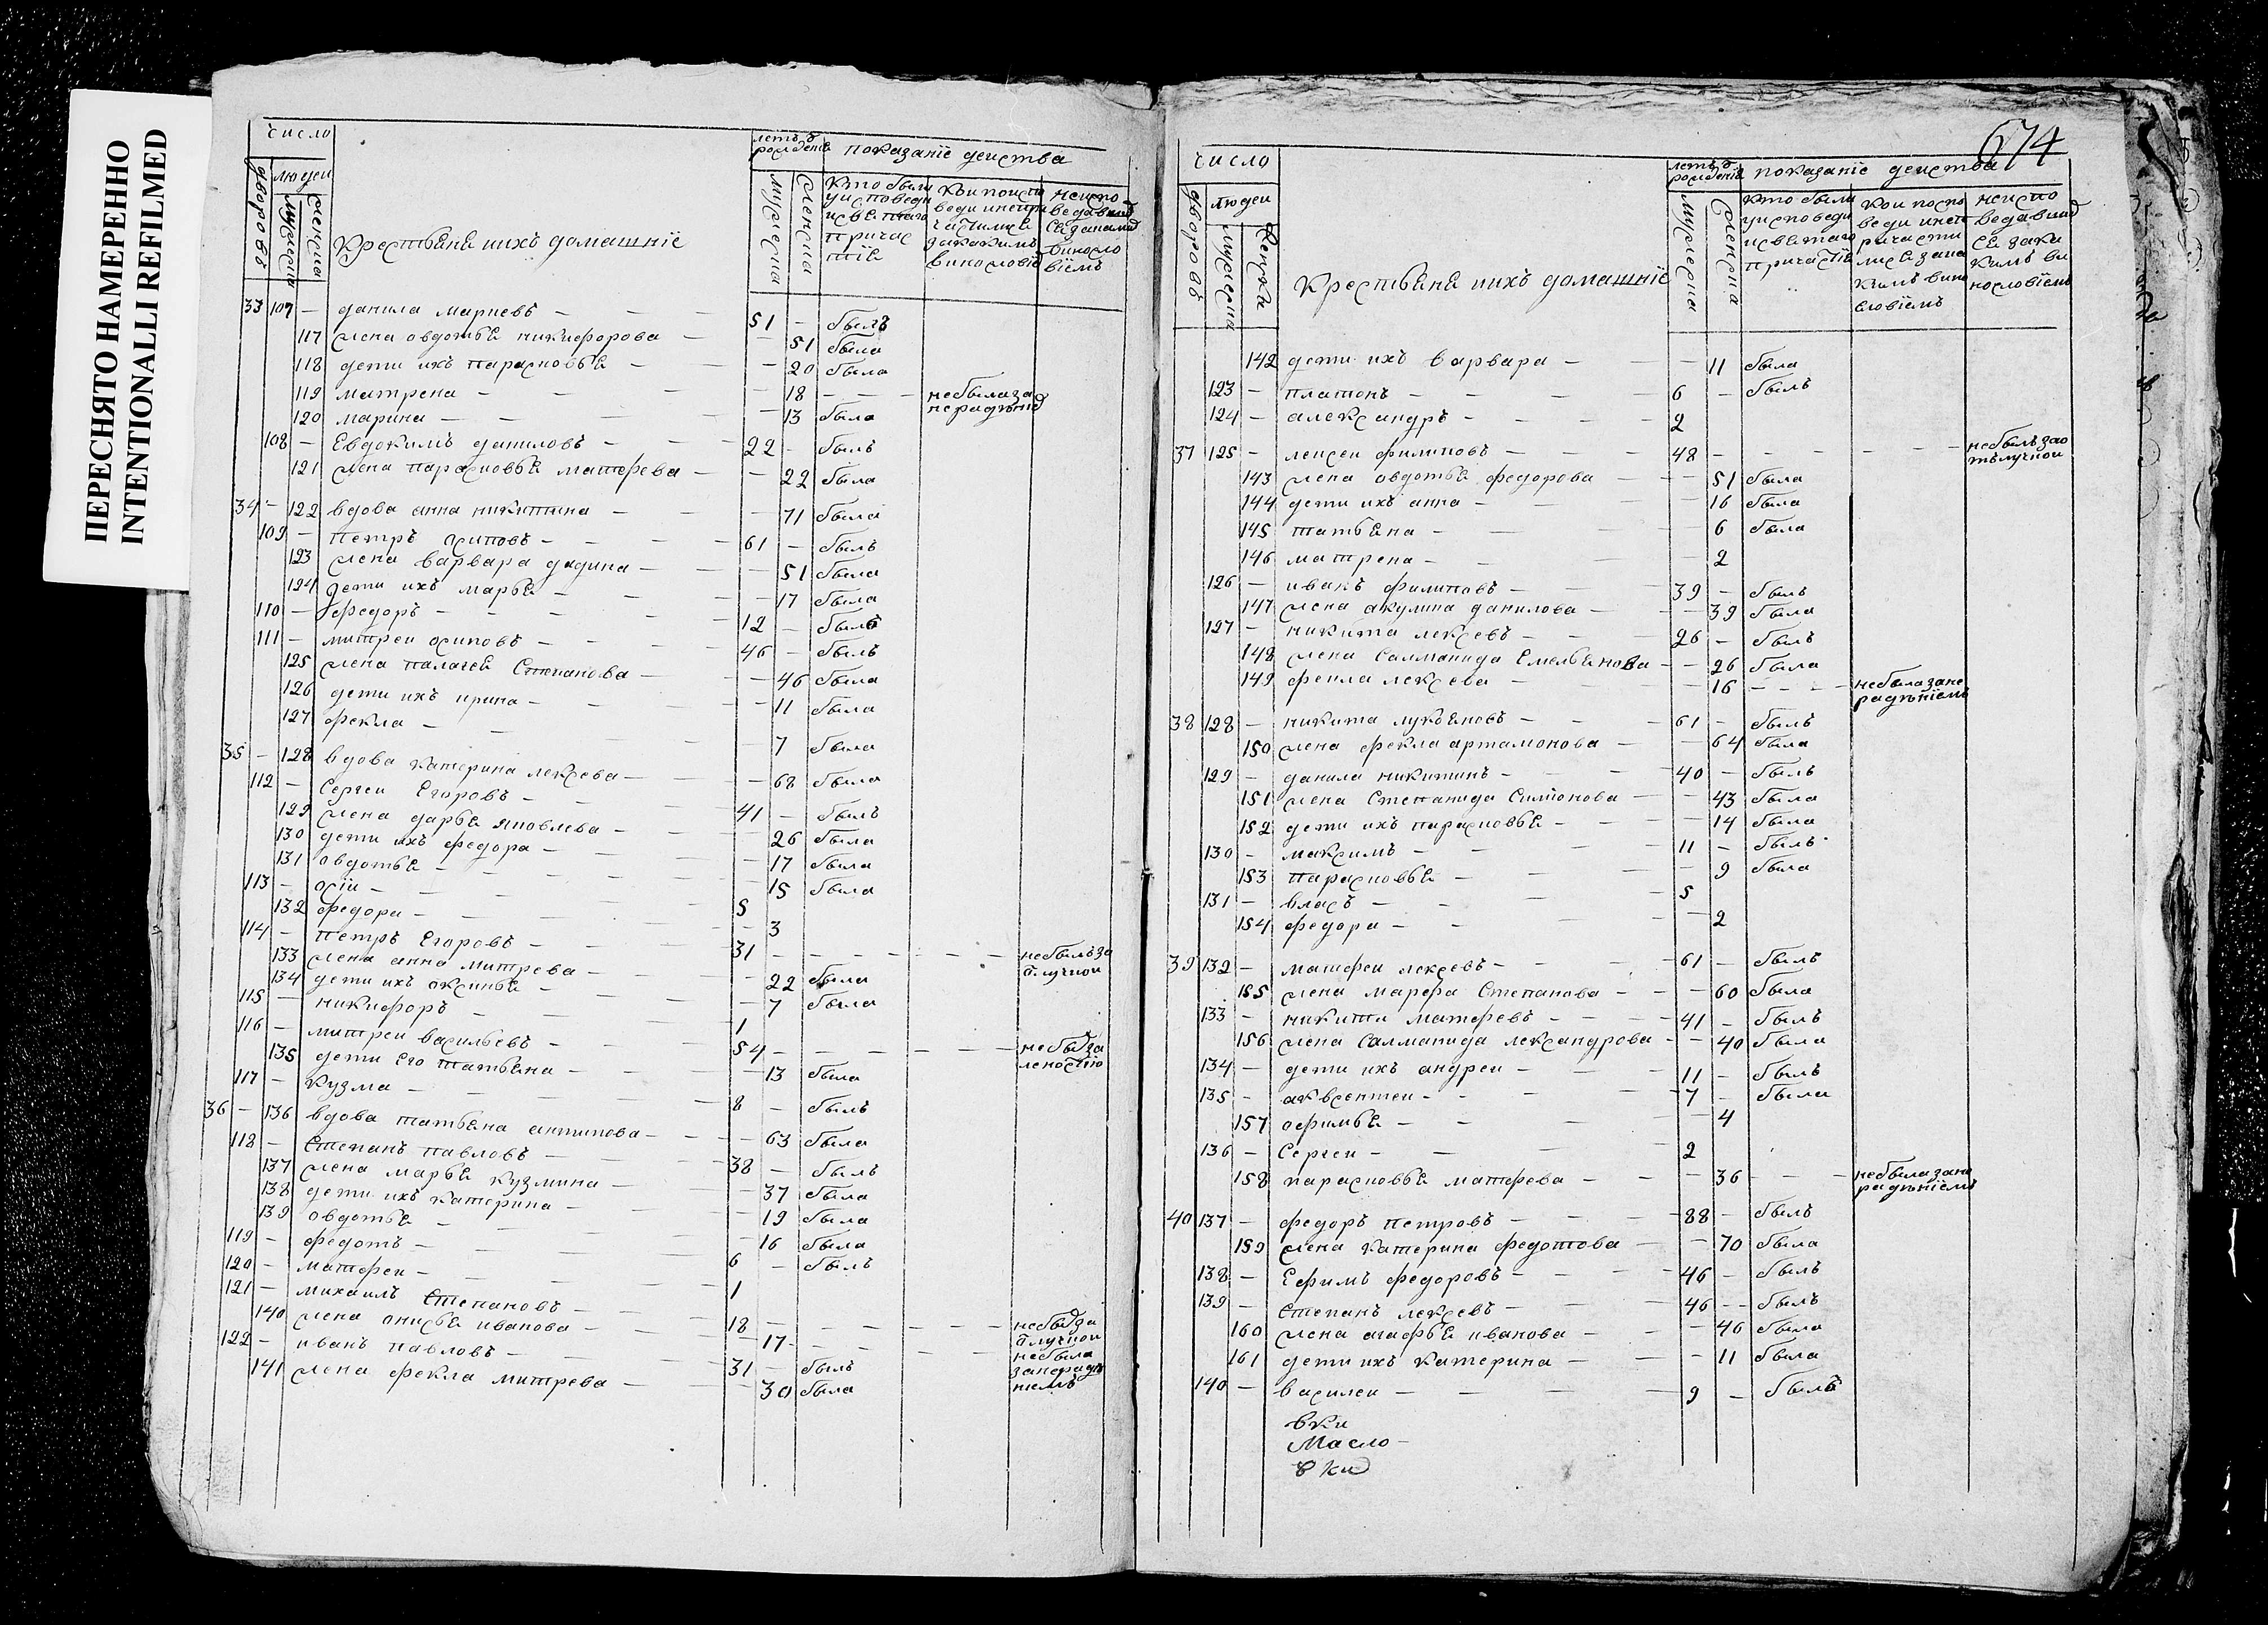 ПЕРЕСНЯТО НАМЕРЕННО
INTENTIONALLI REFILMED
число
дворовъ
людеи
мужеска
женска
Крестьянѣ ихъ домашніе
летъ ѿ рожденіѧ
мужеска
женска
показаніе деиства
33 107 — данила — 51 — былъ
117 жена овдотьѧ никифорова — 51 была
118 дети ихъ парасковьѧ — 20 была
119 матрена — 18 — небыла за нерадѣніе
120 марина — 13 была
108 — Евдокимъ даниловъ — 22 — былъ
121 жена парасковьѧ матфеева — 22 была
34 — 122 вдова анна никитина — 71 была
109 — петръ осиповъ — 61 — былъ
123 жена варвара — 51 была
124 дети ихъ марьѧ — 17 была
110 — федоръ — 12 — былъ
111 — митреи осиповъ — 46 — былъ
125 жена палагеѧ Степанова — 46 была
126 дети ихъ ирина — 11 была
127 фекла — 7 была
35 — 128 вдова катерина лексеева — 68 была
112 — Сергеи Егоровъ — 41 — былъ
129 жена дарьѧ яковлева — 26 была
130 дети ихъ федора — 17 была
131 овдотьѧ — 15 была
113 — осіи — 5
132 федора — 3
114 — петръ Егоровъ — 31 — небылъ за ѿлучкои
133 жена анна митрева — 22 была
134 дети ихъ оксиньѧ — 7 была
115 — никифоръ — 1
116 — митреи васильевъ — 54 — небы за леностію
135 дети Его татьѧна — 13 была
117 — кузма — 8 — былъ
36 — 136 вдова татьѧна антипова — 63 была
118 — Степанъ павловъ — 38 — былъ
137 жена марьѧ кузмина — 37 была
138 дети ихъ катерина — 19 была
139 овдотьѧ — 16 была
119 — федотъ — 6 — былъ
120 — матфеи — 1
121 — михаилъ Степановъ — 18 — небы за ѿлучкои
140 жена онисьѧ иванова — 17 — небыла за нерадѣніемъ
122 — иванъ павловъ — 31 — былъ
141 жена фекла митрева — 30 была
674
число
дворовъ
людеи
мужеска
женска
Крестьянѣ ихъ домашніе
летъ ѿ рожденіѧ
мужеска
женска
показаніе деиства
142 дети ихъ варвара — 11 была
123 — платонъ — 6 — былъ
124 — александръ — 2
37 125 — лексеи филиповъ — 48 — небылъ за отлучкои
143 жена овдотьѧ федорова — 51 была
144 дети ихъ анна — 16 была
145 татьѧна — 6 была
146 матрена — 2
126 — иванъ филиповъ — 39 — былъ
147 жена акулина данилова — 39 была
127 — никита лексеевъ — 26 — былъ
148 жена Салманида Емельѧнова — 26 была
149 фекла лексеева — 16 — небыла за нерадѣніемъ
38 128 — никита лукьѧновъ — 61 — былъ
150 жена фекла артамонова — 64 была
129 — данила никитинъ — 40 — былъ
151 жена Степанида Симіонова — 43 была
152 дети ихъ парасковьѧ — 14 была
130 — максимъ — 11 — былъ
153 парасковьѧ — 9 была
131 — власъ — 5
154 федора — 2
39 132 — матфеи лексеевъ — 61 — былъ
155 жена марфа Степанова — 60 была
133 — никита матфеевъ — 41 — былъ
156 жена Салманида лександрова — 40 была
134 — дети ихъ андреи — 11 — былъ
135 — аксентеи — 7 — была
157 офимьѧ — 4
136 — Сергеи — 2
158 парасковьѧ матфеева — 36 — небыла за нерадѣніемъ
40 137 — федоръ петровъ — 88 — былъ
159 жена катерина федотова — 70 была
138 — Ефимъ федоровъ — 46 — былъ
139 — Степанъ лексеевъ — 46 — былъ
160 жена агафьѧ иванова — 46 была
161 дети ихъ катерина — 11 была
140 — василеи — 9 — былъ
вки
Масло-